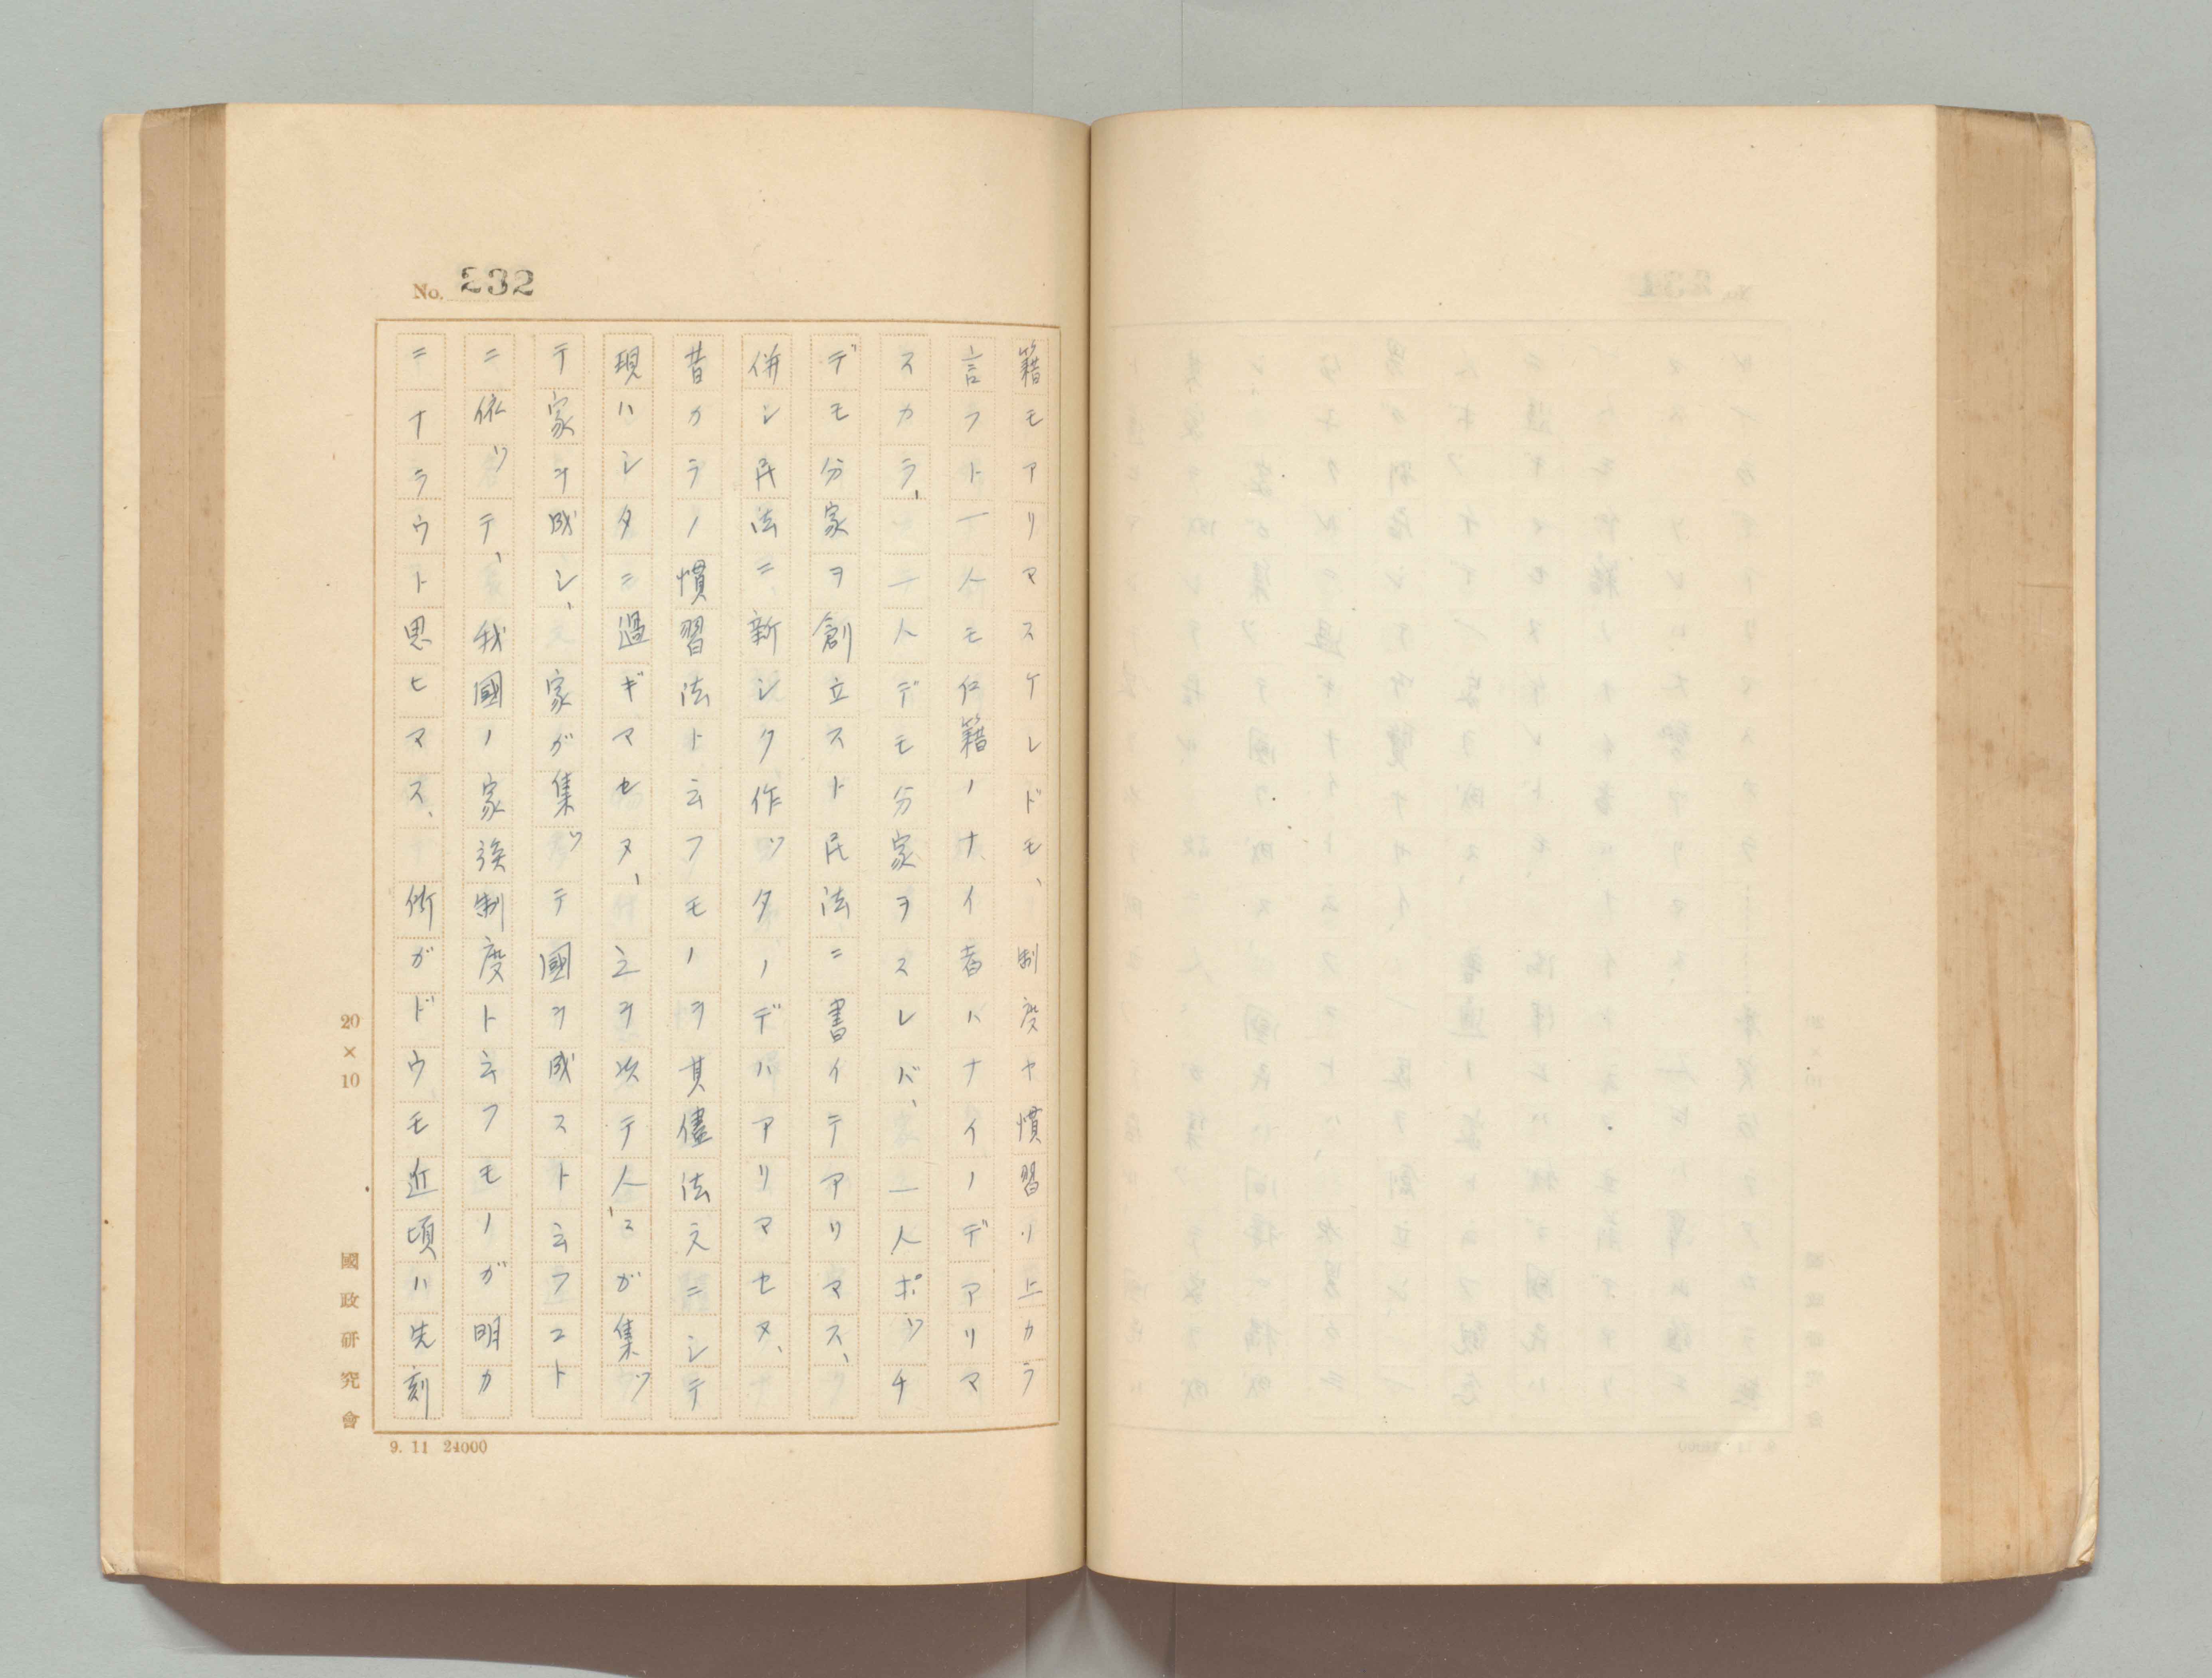 No. 232
籍モアリマスケレドモ、制度ヤ慣習ノ上カラ
言フト一人モ仁籍ノナイ者ハナイノデアリマ
スカラ、一人デモ分家ヲスレバ、一人ポッチ
デモ分家ヲ創立スト民法ニ書イテアリマス、
併シ民法ニ新シク作ッタノデハアリマセヌ、
昔カラノ慣習法ト云フモノヲ其儘法文ニシテ
現ハシタニ過ギマセヌ、之ヲ次テ人々ガ集ッ
テ家ヲ成シ、家ガ集ッテ國ヲ成スト云フコト
ニ依ッテ、我國ノ家族制度ト云フモノガ明カ
ニナラウト思ヒマス、術ガドウモ近頃ハ先刻
20×10
國政研究會
9. 11 24000